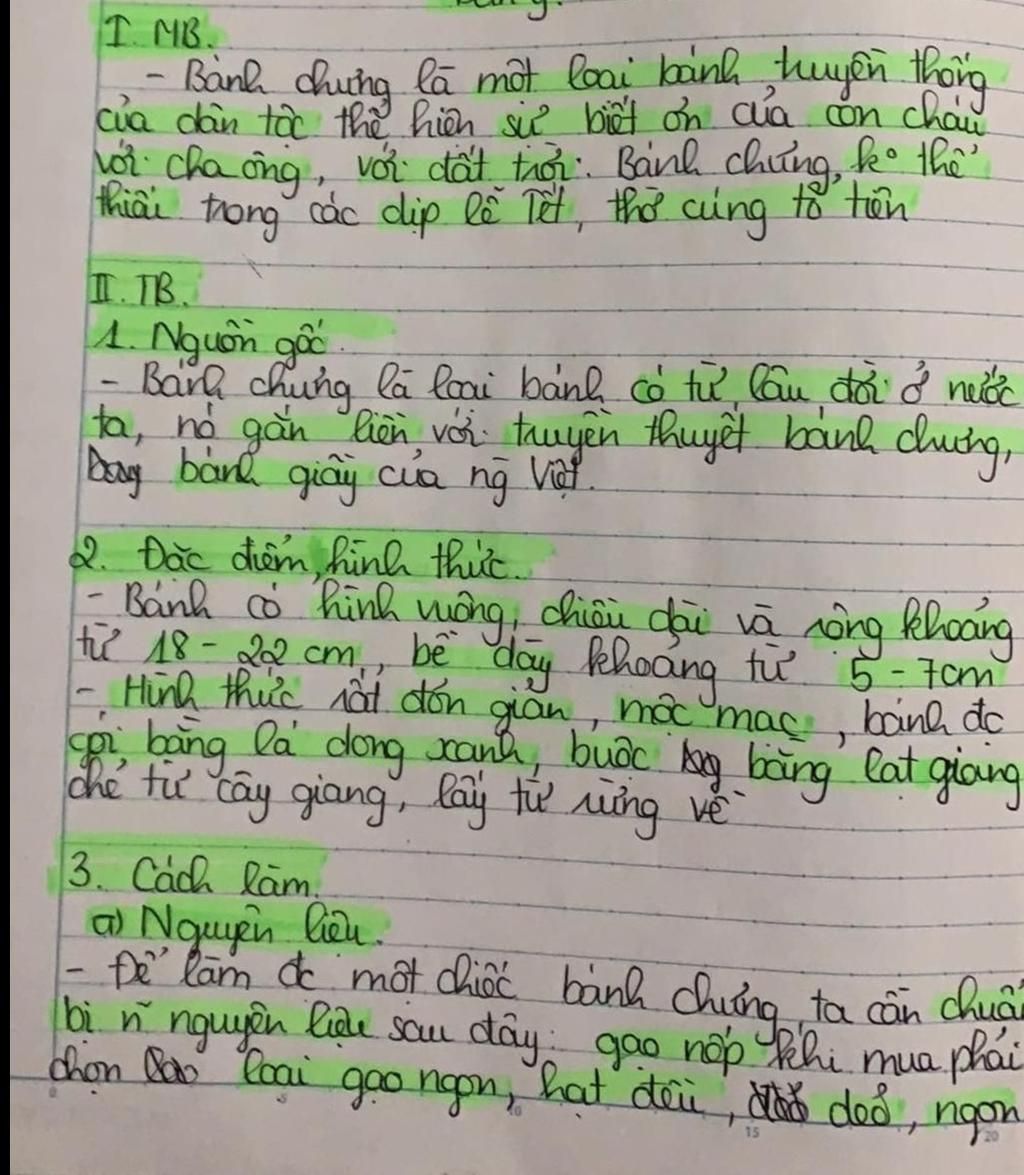 I. MB.
- Bánh chưng là một loại bánh truyền thống
của dân tộc thể hiện sự biết ơn của con cháu
với cha ông, với đất trời. Bánh chưng ko thể
thiếu trong các dịp lễ Tết, thờ cúng tổ tiên
II. TB.
1. Nguồn gốc.
- Bánh chưng là loại bánh có từ lâu đời ở nước
ta, nó gắn liền với truyền thuyết bánh chưng,
bánh giầy của ng̃ Việt.
2. Đặc điểm, hình thức.
- Bánh có hình vuông, chiều dài và rộng khoảng
từ 18 - 22 cm, bề dày khoảng từ 5 - 7cm
- Hình thức rất đơn giản, mộc mạc, bánh đc
gói bằng lá dong xanh, buộc bằng lạt giang
chẻ từ cây giang, lấy từ rừng về
3. Cách làm.
a) Nguyên liệu.
- Để làm đc một chiếc bánh chưng ta cần chuẩ
bị n~ nguyên liệu sau đây: gạo nếp khi mua phải
chọn loại gạo ngon, hạt đều, dẻo, ngon
15
20